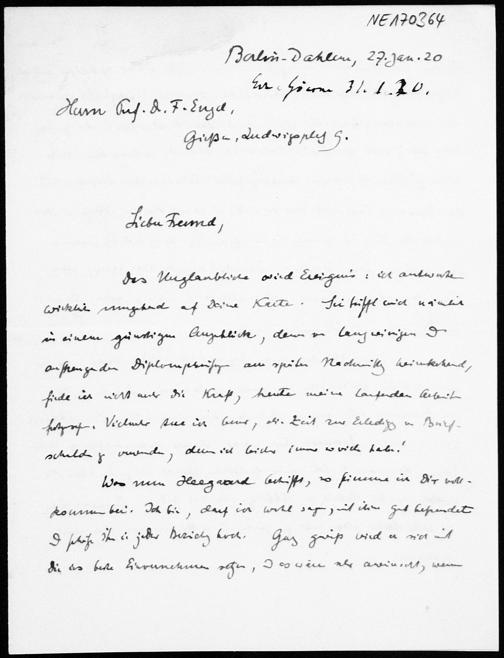 NE170364
Berlin-Dahlem, 27. Jan. 20
31. 1. 20.
Herrn Prof. D. F. Engel,
Gießen, Ludwigsplatz 9.
Lieber Freund,
Das Unglaubliche wird Ereignis: ich antworte
wirklich umgehend auf Deine Karte. Sie trifft mich nämlich
in einem günstigen Augenblick, denn von langweiligen &
anstrengenden Diplomprüfungen am späten Nachmittag heimkehrend,
finde ich nicht mehr die Kraft, heute meine laufenden Arbeiten
Vielmehr die Zeit zur Erledigung von Brief-
schulden zu verwenden, deren ich leider immer so viele habe!
Was nun Heegaard betrifft, so stimme ich Dir voll-
kommen bei. Ich bin, darf ich wohl sagen, mit ihm gut befreundet
& schätze ihn in jeder Beziehung hoch. Ganz gewiß wird er sich mit
Dir ins beste Einvernehmen setzen, & es wäre sehr erwünscht, wenn